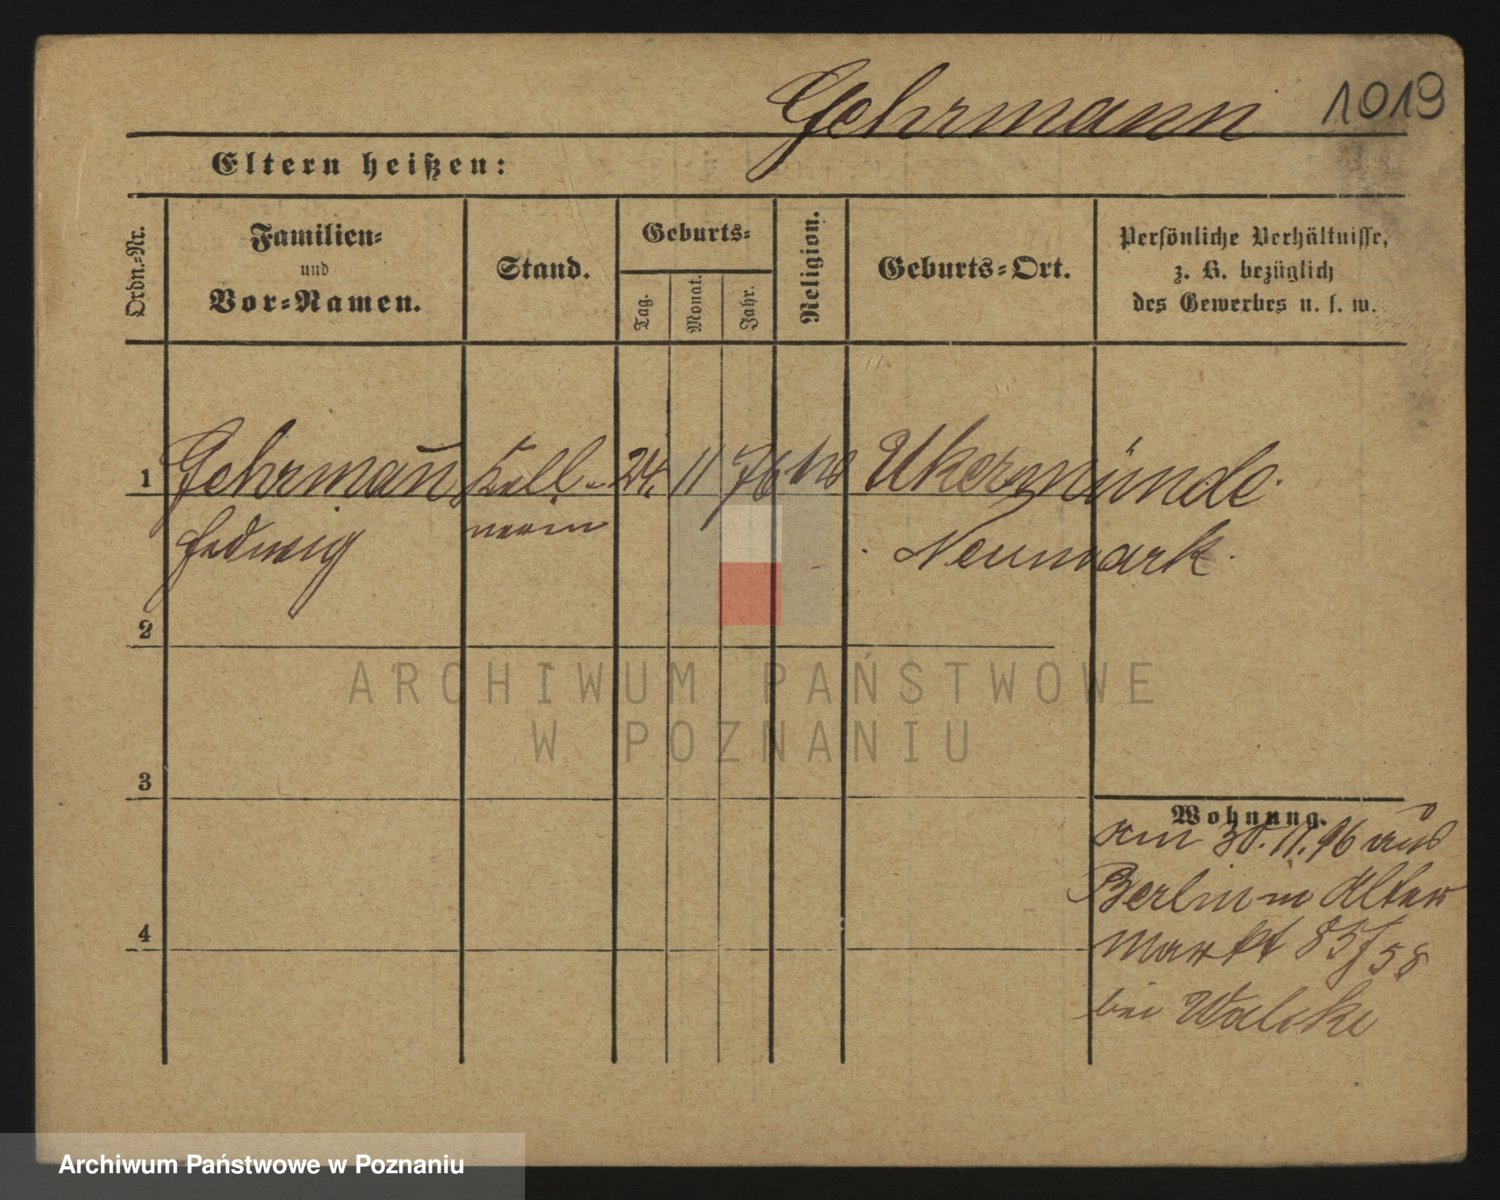 Gehrmann 1019
Eltern heißen:
Ordn.-Nr.
Familien-
und
Vor-Namen.
Stand.
Geburts-
Tag.
Monat.
Jahr.
Religion.
Geburts-Ort.
Persönliche Verhältnisse,
z. B. bezüglich
des Gewerbes u. s. w.
1 Gehrman̄ Kell- 24. 11 76 Ukermünde.
Hedwig nerin Neumark.
2
3
4
Wohnung.
am 30.11.96 aus
Berlin n Alter
Markt 85/58
bei
ARCHIWUM PAŃSTWOWE
W POZNANIU
Archiwum Państwowe w Poznaniu